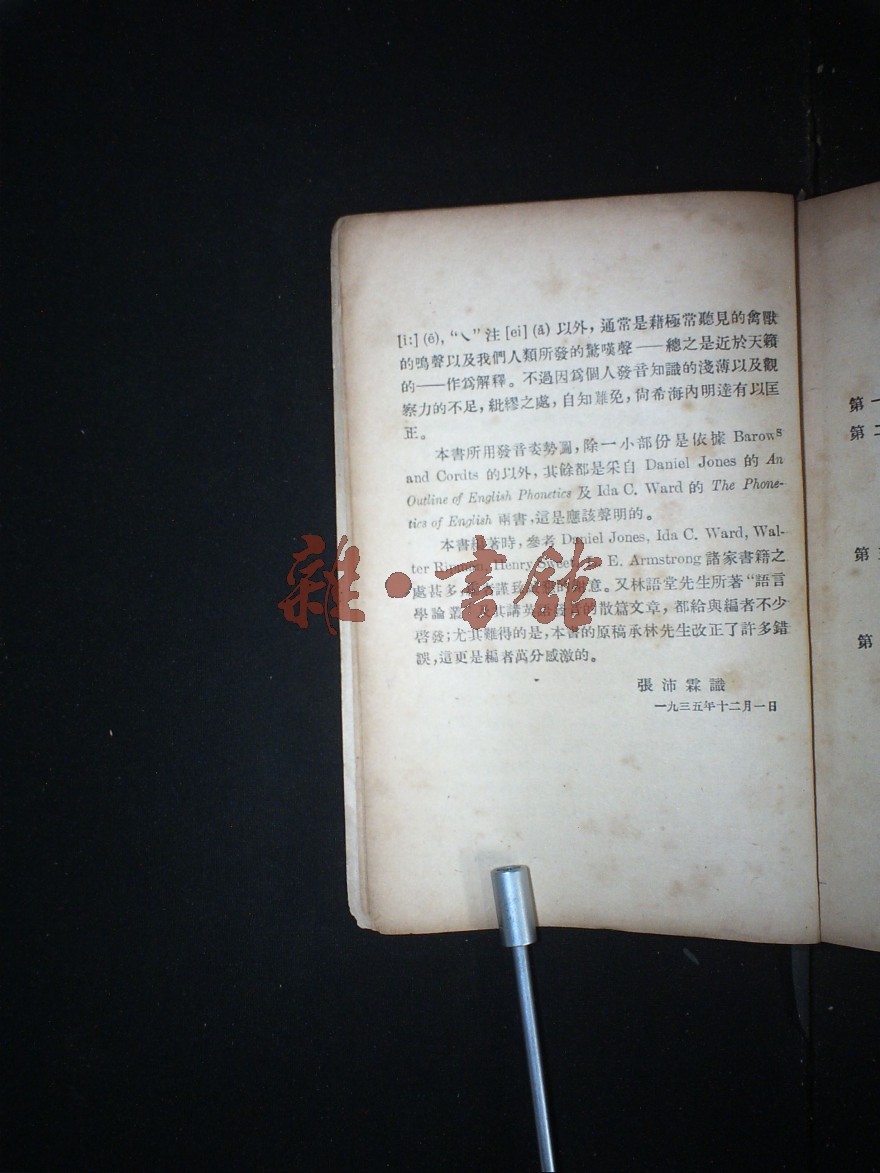 [i:] (ē), “㇏” 注 [ei] (ā) 以外，通常是藉極常聽見的禽獸
的鳴聲以及我們人類所發的驚嘆聲——總之是近於天籟
的——作爲解釋。不過因爲個人發音知識的淺薄以及觀
察力的不足，紕繆之處，自知難免，尙希海內明達有以匡
正。
本書所用發音姿勢圖，除一小部份是依據 Barows
and Cordts 的以外，其餘都是采自 Daniel Jones 的 An
Outline of English Phonetics 及 Ida C. Ward 的 The Phone-
tics of English 兩書，這是應該聲明的。
本書著時，參考 Daniel Jones, Ida C. Ward, Wal-
ter Ripman, Henry Sweet, E. Armstrong 諸家書籍之
處甚多，謹意。又林語堂先生所著“語言
學論叢其講英語的散篇文章，都給與編者不少
啓發；尤其難得的是，本書的原稿承林先生改正了許多錯
誤，這更是編者萬分感激的。
張沛霖識
一九三五年十二月一日
雜·書館
第一
第二
第
第